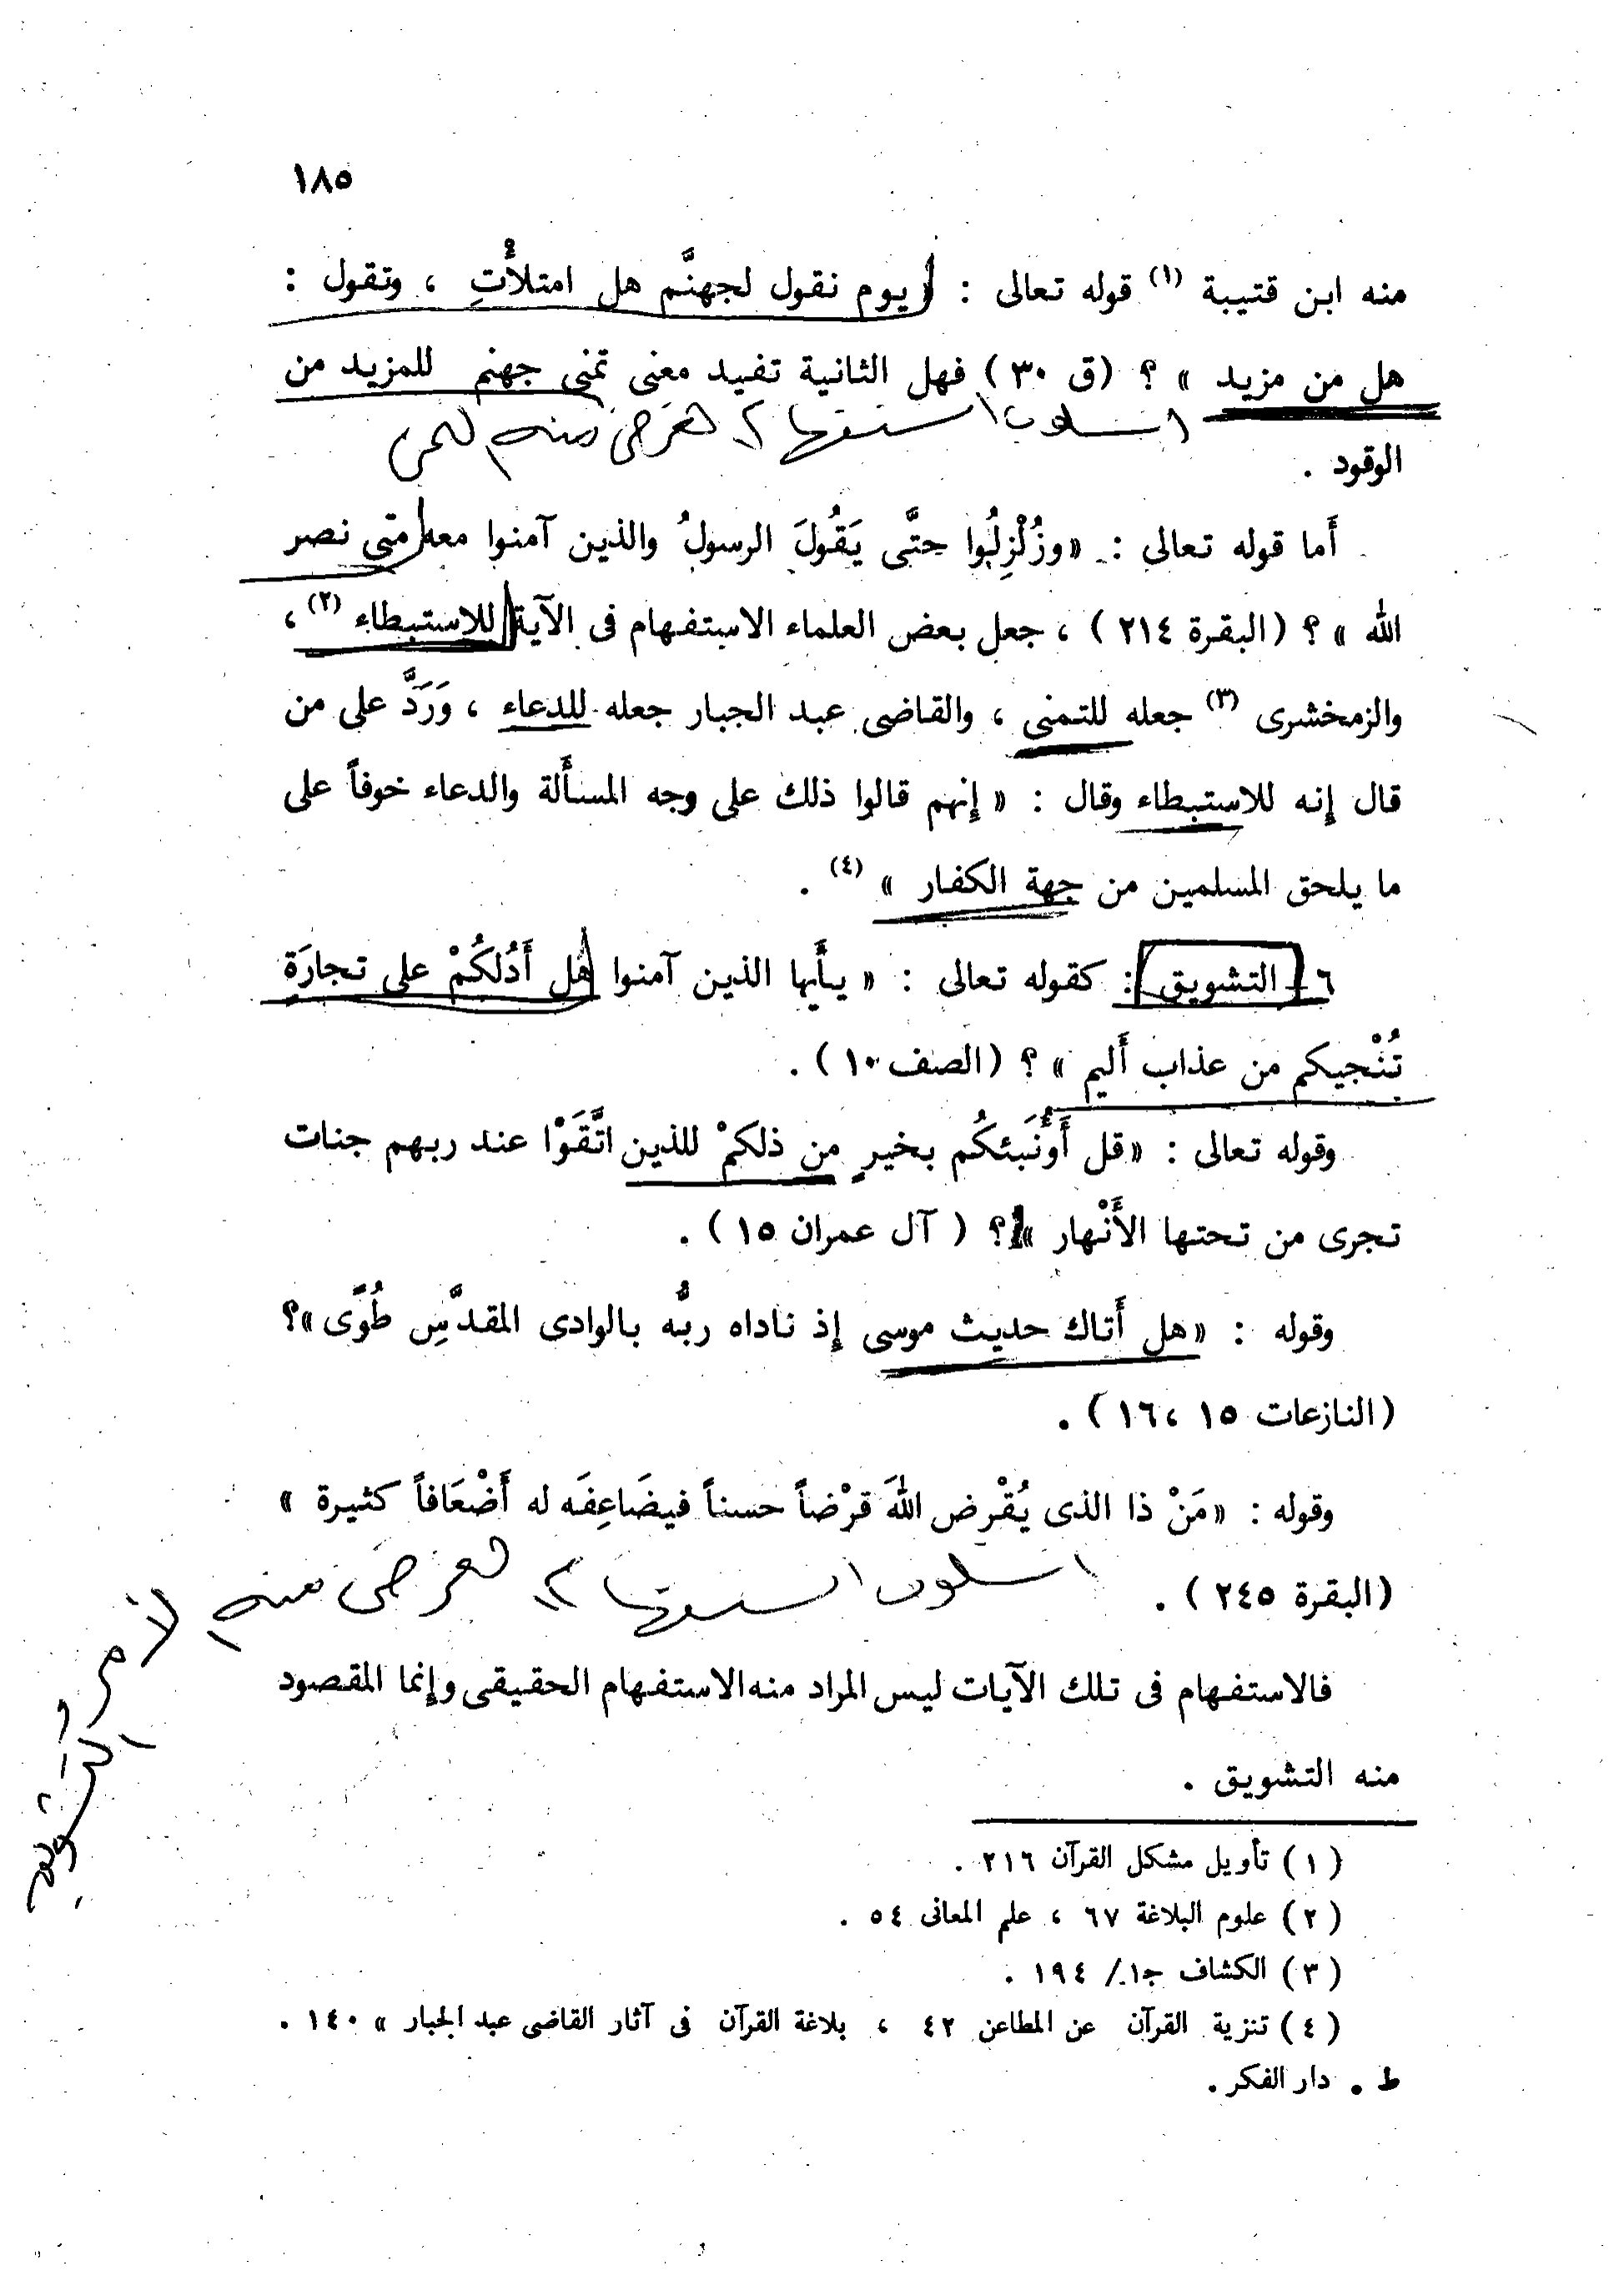 ١٨٥
منه ابن قتيبة (١) قوله تعالى : « يوم نقول لجهنَّم هل امتلأْتِ ، وتقول :
هل من مزيد » ؟ (ق ٣٠) فهل الثانية تفيد معنى تمنى جهنم للمزيد من
اسلوب استفهام غرضه منه
الوقود .
أَما قوله تعالى : «وزُلْزِلُوا حتَّى يَقُولَ الرسولُ والذين آمنوا معه متى نصر
الله » ؟ (البقرة ٢١٤) ، جعل بعض العلماء الاستفهام فى الآية للاستبطاء (٢) ،
والزمخشرى (٣) جعله للتمنى ، والقاضى عبد الجبار جعله للدعاء ، وَرَدَّ على من
قال إِنه للاستبطاء وقال : « إِنهم قالوا ذلك على وجه المسأَلة والدعاء خوفاً على
ما يلحق المسلمين من جهة الكفار » (٤) .
٦ – التشويق : كقوله تعالى : « يأَيها الذين آمنوا هل أَدُلكُمْ على تجارَةٍ
تُنْجيكم من عذاب أَليم » ؟ (الصف ١٠) .
وقوله تعالى : «قل أَؤُنَبئكُم بخيرٍ من ذلكمْ للذين اتَّقَوْا عند ربهم جنات
تجرى من تحتها الأَنْهار »؟ ( آل عمران ١٥ ) .
وقوله : «هل أَتاك حديث موسى إِذ ناداه ربُّه بالوادى المقدَّسِ طُوًى »؟
(النازعات ١٥ ،١٦) .
وقوله : «مَنْ ذا الذى يُقْرض اللهَ قرْضاً حسناً فيضَاعِفَه له أَضْعَافاً كثيرة »
اسلوب استفهام غرضه منه
الأمر والتشويق
(البقرة ٢٤٥) .
فالاستفهام فى تلك الآيات ليس المراد منه الاستفهام الحقيقى وإِنما المقصود
منه التشويق .
(١) تأويل مشكل القرآن ٢١٦ .
(٢) علوم البلاغة ٦٧ ، علم المعانى ٥٤ .
(٣) الكشاف جـ١/ ١٩٤ .
(٤) تنزية القرآن عن المطاعن ٤٢ ، بلاغة القرآن فى آثار القاضى عبد الجبار » ١٤٠ .
ط . دار الفكر .